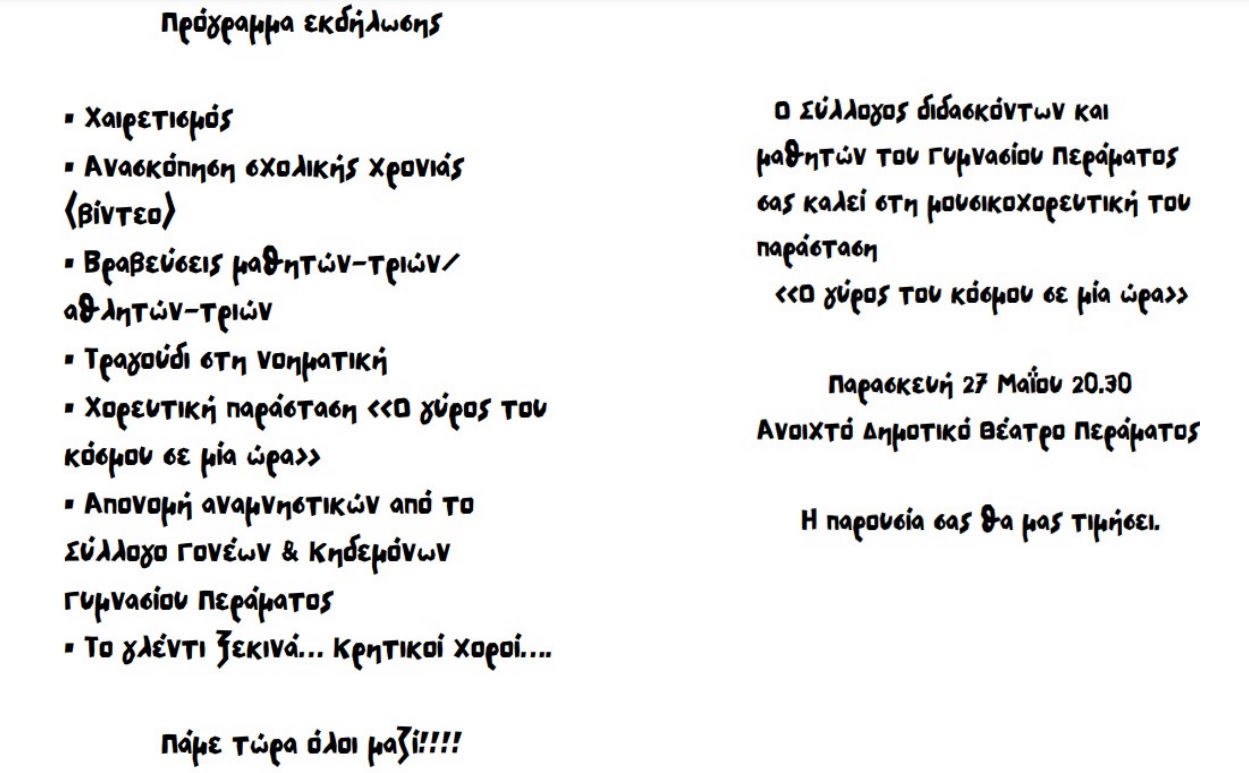 Πρόγραμμα εκδήλωσης
▪ Χαιρετισμός
▪ Ανασκόπηση σχολικής χρονιάς
(βίντεο)
▪ Βραβεύσεις μαθητών-τριών/
αθλητών-τριών
▪ Τραγούδι στη νοηματική
▪ Χορευτική παράσταση <<Ο γύρος του
κόσμου σε μία ώρα>>
▪ Απονομή αναμνηστικών από το
Σύλλογο Γονέων & Κηδεμόνων
Γυμνασίου Περάματος
▪ Το γλέντι ξεκινά... Κρητικοί χοροί....
Πάμε τώρα όλοι μαζί!!!!
Ο Σύλλογος διδασκόντων και
μαθητών του Γυμνασίου Περάματος
σας καλεί στη μουσικοχορευτική του
παράσταση
<<Ο γύρος του κόσμου σε μία ώρα>>
Παρασκευή 27 Μαΐου 20.30
Ανοιχτό Δημοτικό Θέατρο Περάματος
Η παρουσία σας θα μας τιμήσει.